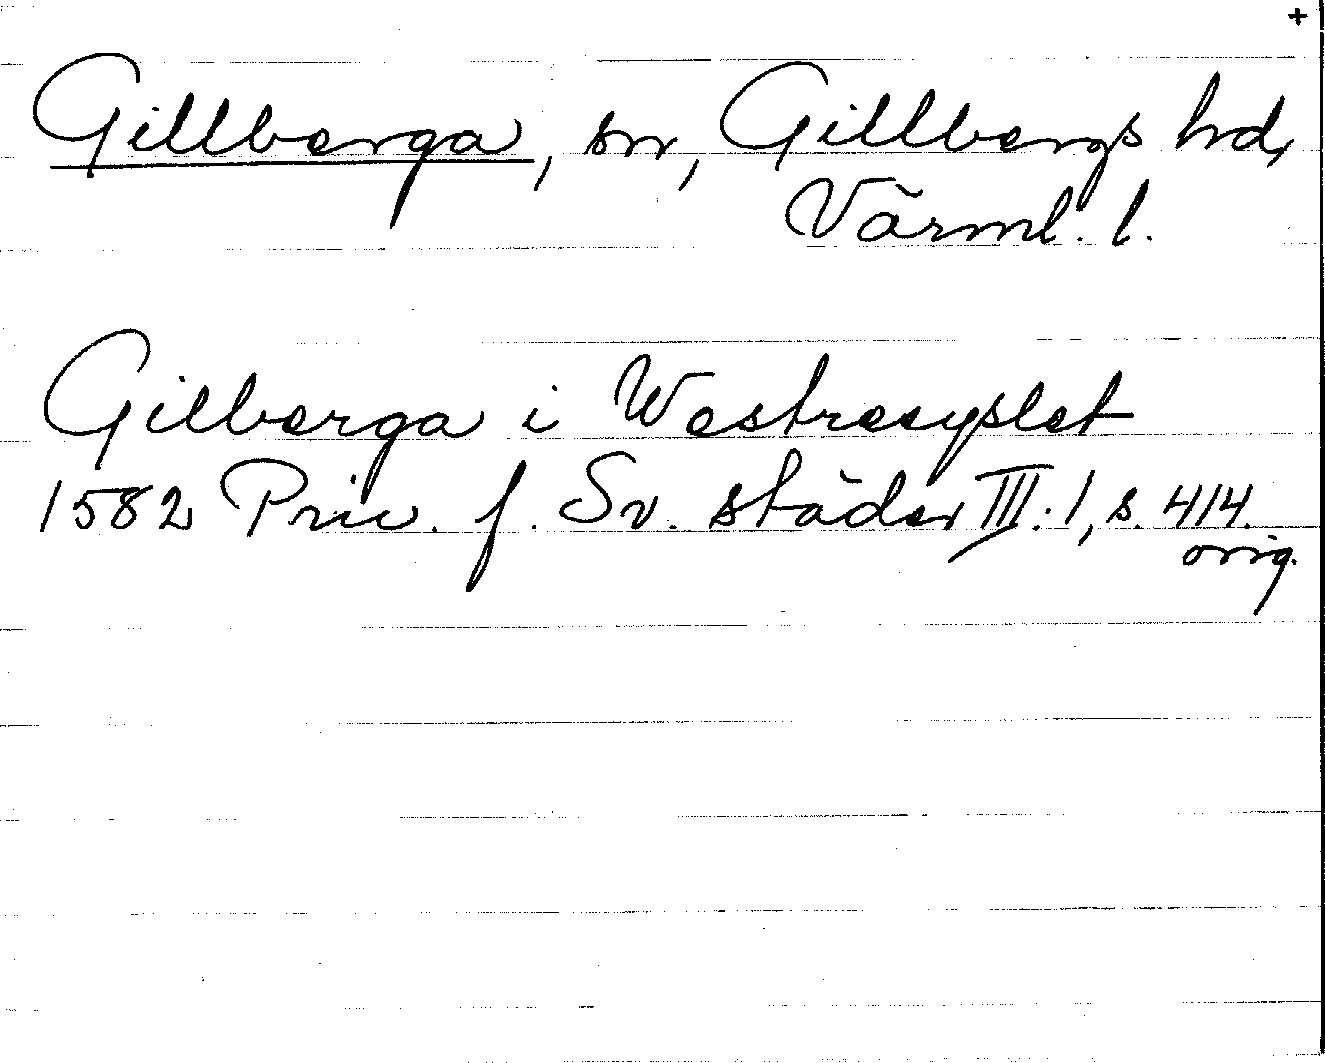 +
Gillberga, sn, Gillbergs hd,
Värml. l.
Gilberga i Westresyslet
1582 Priv. f. Sv. städer III:1, s. 414.
orig.